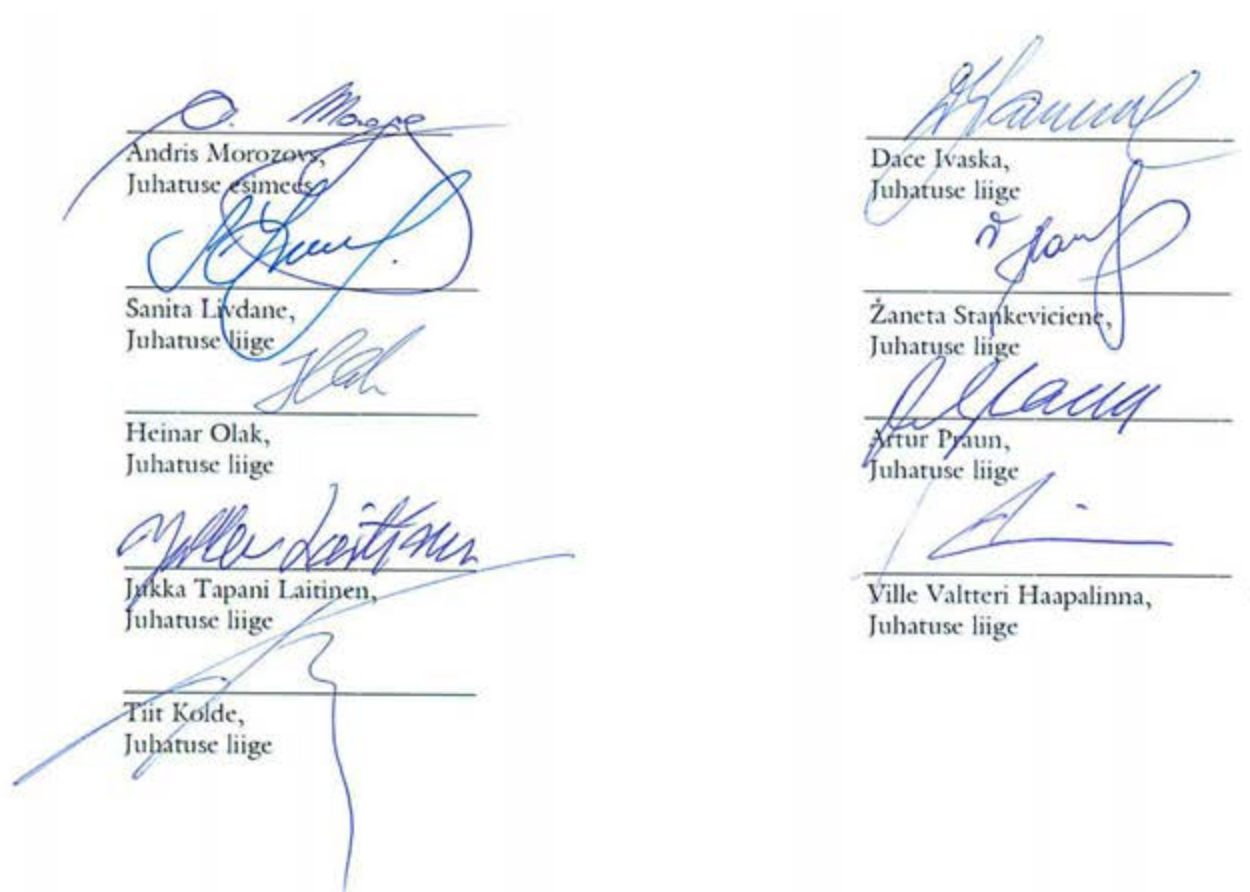 Andris Morozovs,
Juhatuse esimees
Sanita Livdane,
Juhatuse liige
Heinar Olak,
Juhatuse liige
Jukka Tapani Laitinen,
Juhatuse liige
Tiit Kolde,
Juhatuse liige
Dace Ivaska,
Juhatuse liige
Žaneta Stankeviciene,
Juhatuse liige
Artur Praun,
Juhatuse liige
Ville Valtteri Haapalinna,
Juhatuse liige